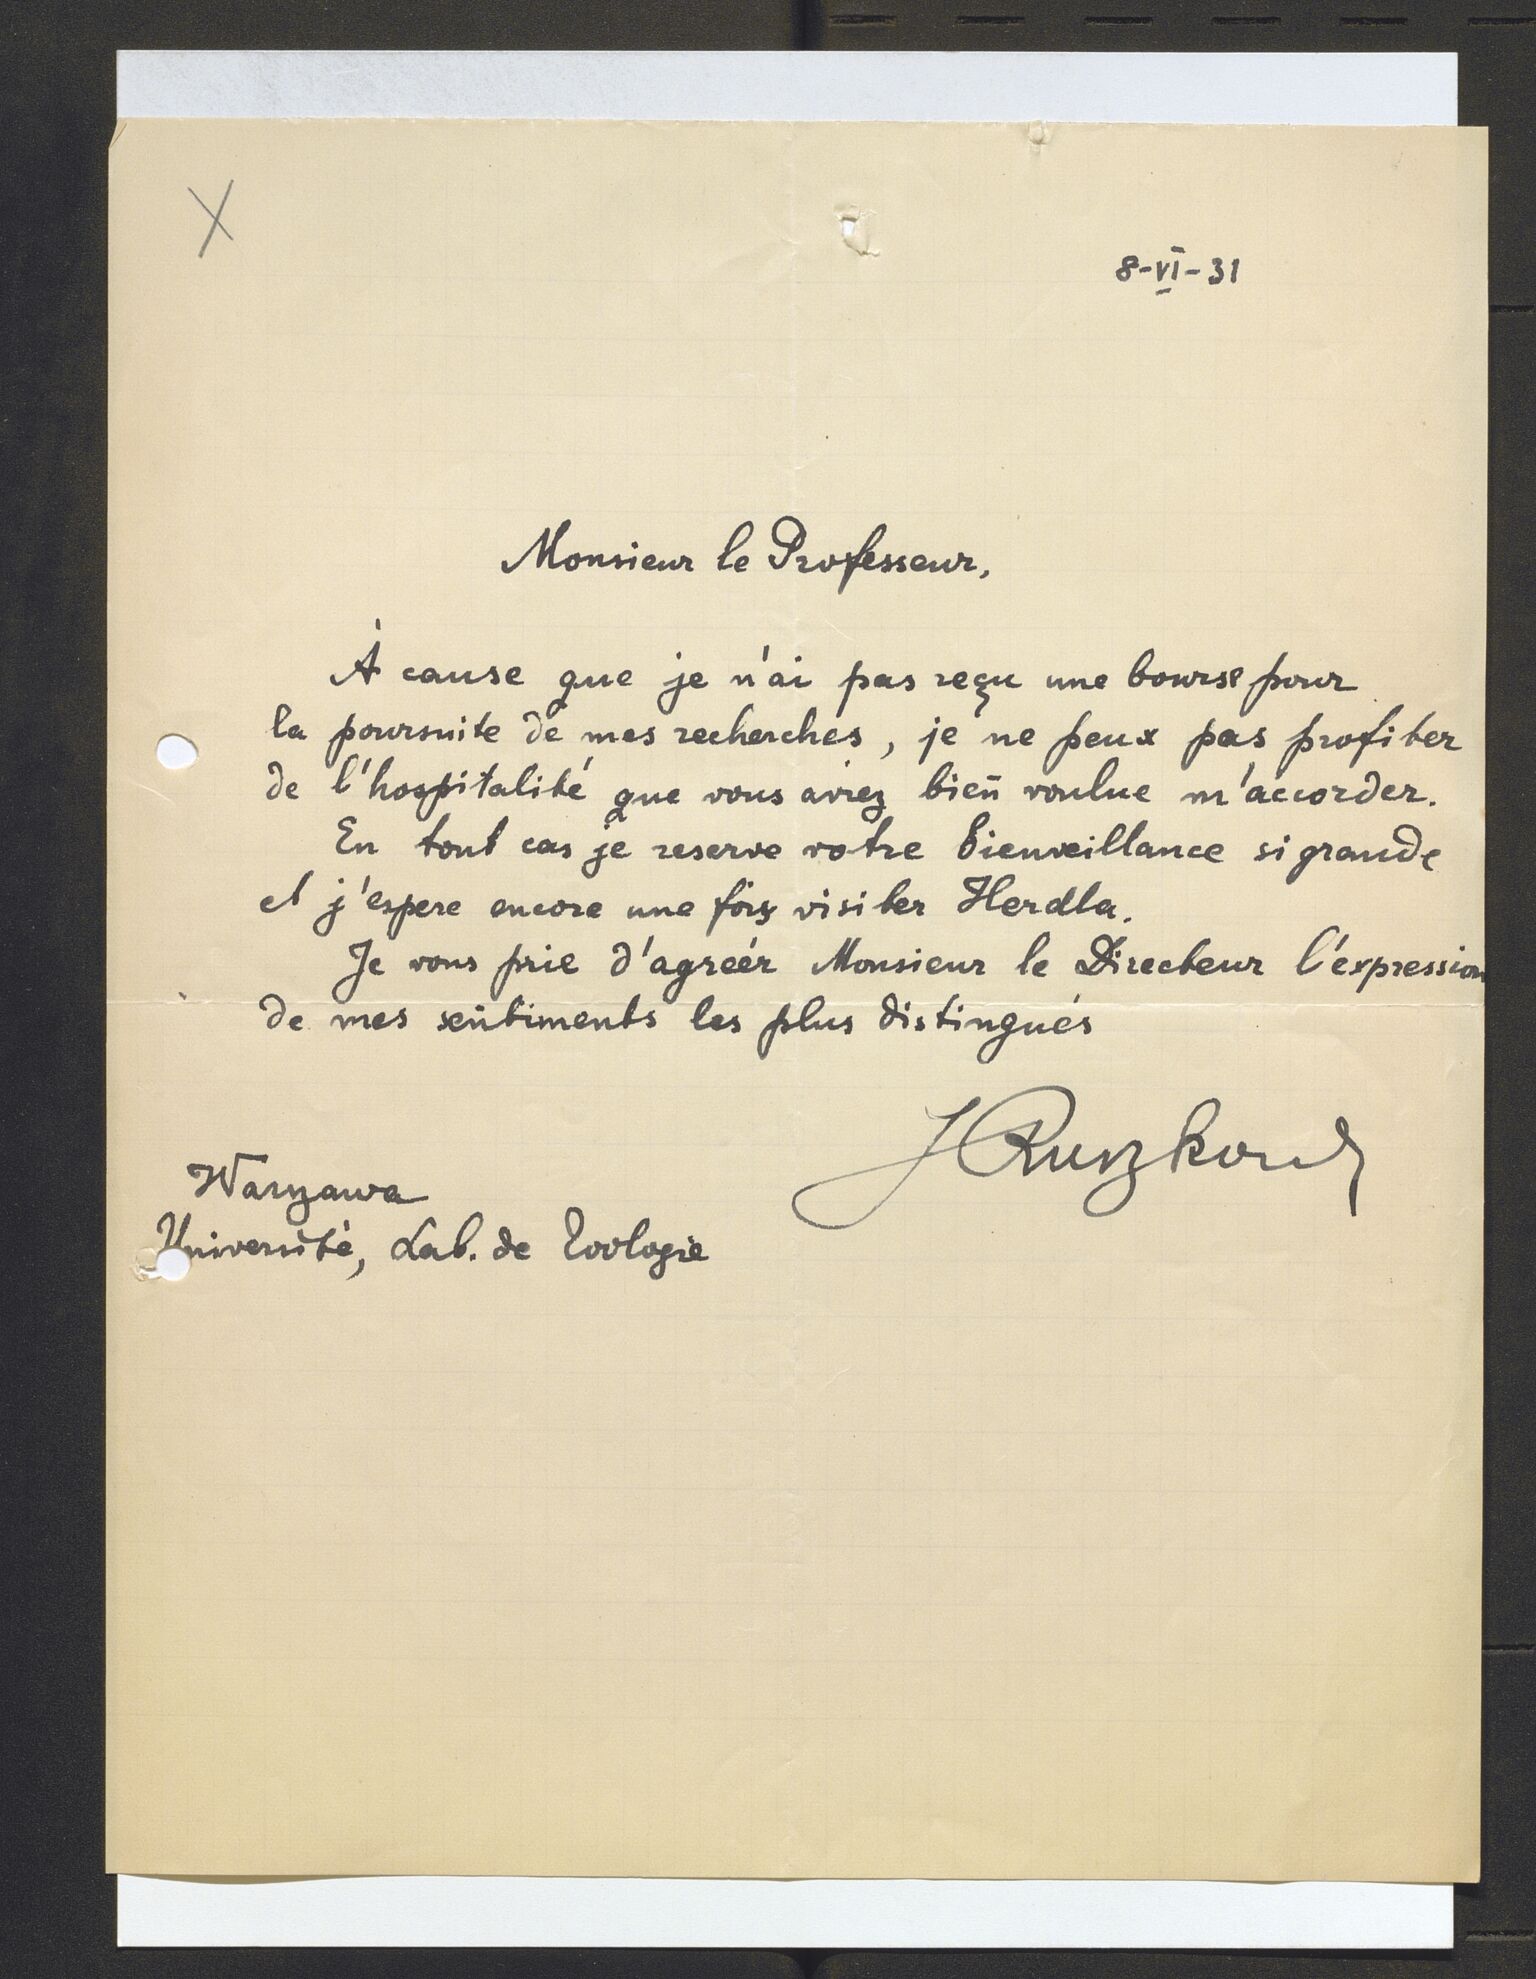 X
8-VI-31
Monsieur le Professeur,
À cause que je n'ai pas reçu une bourse pour
la poursuite de mes recherches, je ne peux pas profiter
de l'hospitalité que vous aviez bien voulue m'accorder.
En tout cas je reserve votre bienveillance si grande
et j'espere encore une fois visiter Herdla.
Je vous prie d'agréer Monsieur le Directeur l'expression
de mes sentiments les plus distingués
J Ruszkowski
Warszawa
Université, Lab. de Zoologie